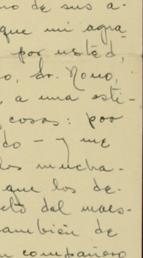 no de sus a-
que mi agra
por usted,
o, Sr. Novo,
, a una esti-
cosas: por
do - y me
los mucha-
que los de-
eto del maes-
también de
n compañero